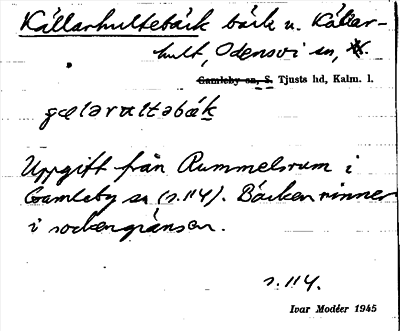 Källarhultebäck bäck n. Källar-
hult, Odensvi sn, N.
Gamleby sn, S. Tjusts hd, Kalm. l.
gæləraltəbæk
Uppgift från Rummelsrum i
Gamleby sn (s. 114). Bäcken rinner
i sockengränsen.
s. 114.
Ivar Modéer 1945